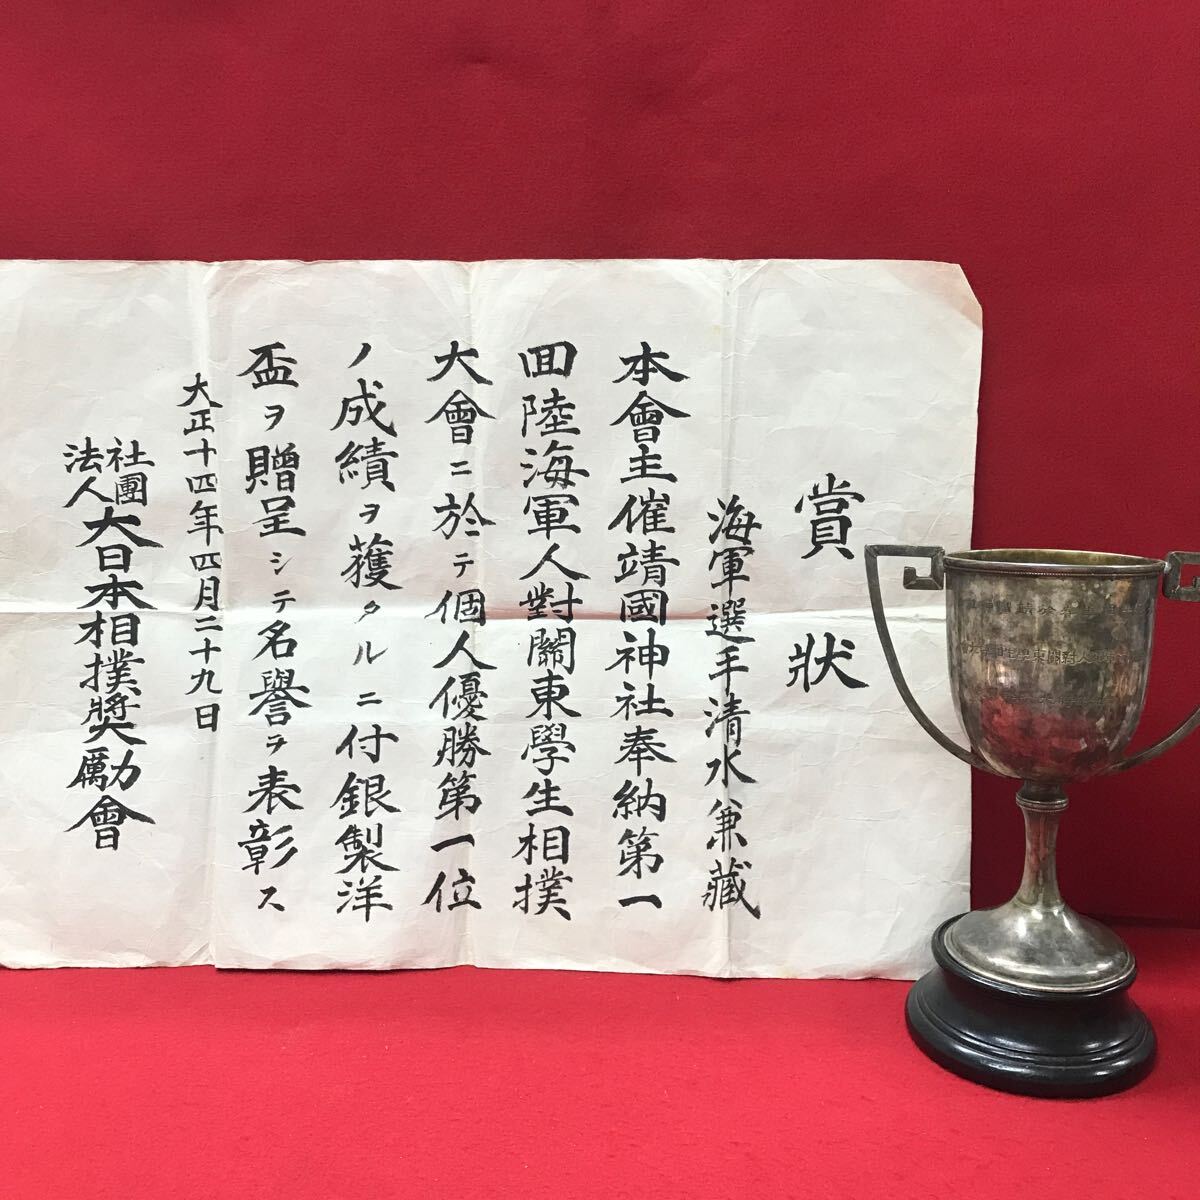 賞狀
海軍選手清水兼藏
本會主催靖國神社奉納第一
回陸海軍人對關東學生相撲
大會ニ於テ個人優勝第一位
ノ成績ヲ獲タルニ付銀製洋
盃ヲ贈呈シテ名譽ヲ表彰ス
大正十四年四月二十九日
社團法人大日本相撲奬勵會